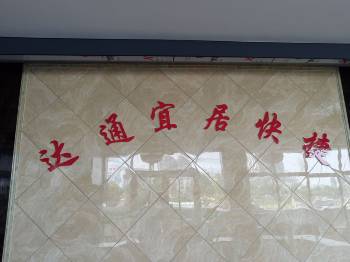 达通宜居快捷